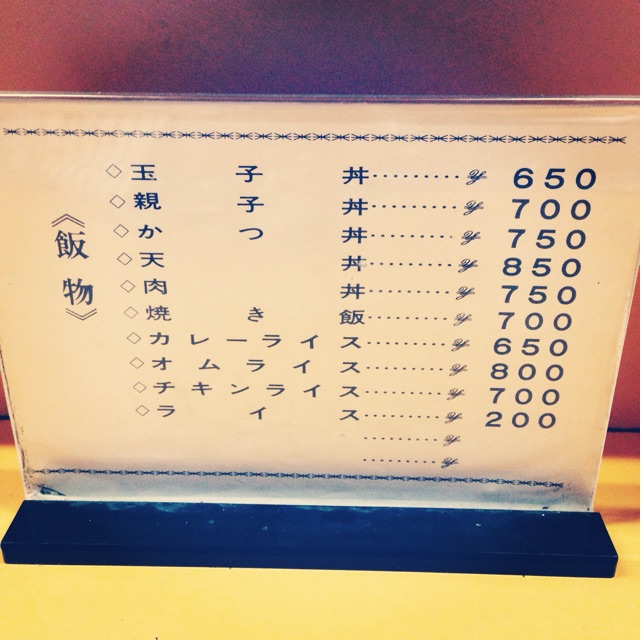 《飯物》
◇玉子丼………¥ 650
◇親子丼………¥ 700
◇かつ丼………¥ 750
◇天丼………¥ 850
◇肉丼………¥ 750
◇焼き飯………¥ 700
◇カレーライス………¥ 650
◇オムライス………¥ 800
◇チキンライス………¥ 700
◇ライス………¥ 200
………¥
………¥